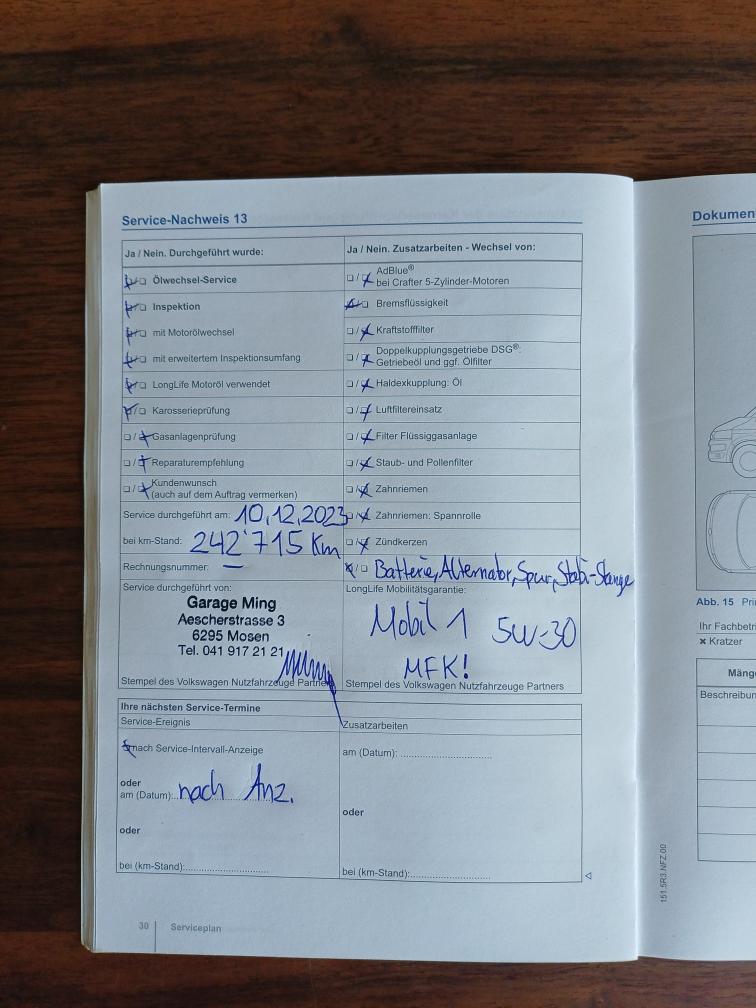 Service-Nachweis 13
Ja / Nein. Durchgeführt wurde:
Ölwechsel-Service
Inspektion
mit Motorölwechsel
mit erweitertem Inspektionsumfang
LongLife Motoröl verwendet
Karosserieprüfung
Gasanlagenprüfung
Reparaturempfehlung
Kundenwunsch
(auch auf dem Auftrag vermerken)
Service durchgeführt am: 10.12.2023
bei km-Stand: 242'715 Km
Rechnungsnummer: –
Service durchgeführt von:
Garage Ming
Aescherstrasse 3
6295 Mosen
Tel. 041 917 21 21
Stempel des Volkswagen Nutzfahrzeuge Partners
Ja / Nein. Zusatzarbeiten - Wechsel von:
AdBlue®
bei Crafter 5-Zylinder-Motoren
Bremsflüssigkeit
Kraftstofffilter
Doppelkupplungsgetriebe DSG®:
Getriebeöl und ggf. Ölfilter
Haldexkupplung: Öl
Luftfiltereinsatz
Filter Flüssiggasanlage
Staub- und Pollenfilter
Zahnriemen
Zahnriemen: Spannrolle
Zündkerzen
Batterie, Alternator, Spur, Stabi-Stange
LongLife Mobilitätsgarantie:
Mobil 1 5W-30
MFK!
Stempel des Volkswagen Nutzfahrzeuge Partners
Ihre nächsten Service-Termine
Service-Ereignis
nach Service-Intervall-Anzeige
oder
am (Datum): nach Anz.
oder
bei (km-Stand):
Zusatzarbeiten
am (Datum):
oder
bei (km-Stand):
30 Serviceplan
151.5R3.NFZ.00
Dokumen
Abb. 15 Pri
Ihr Fachbetri
✖ Kratzer
Mäng
Beschreibun